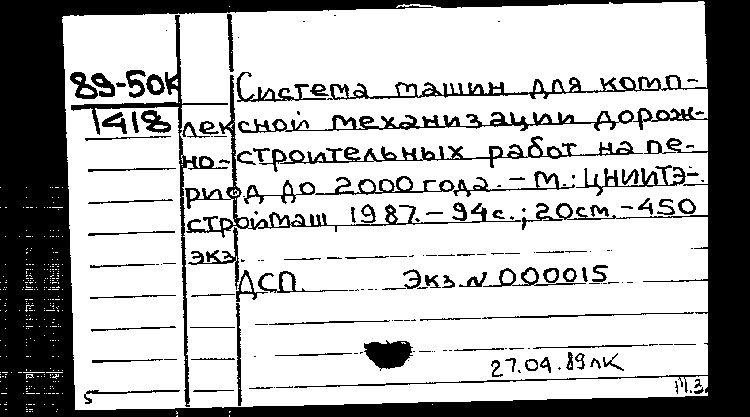 89-50К
1418
Система машин для комп-
лексной механизации дорож-
но-строительных работ на пе-
риод до 2000 года. - М.: ЦНИИТЭ-
строймаш, 1987. - 94 с.; 20 см. - 450
экз.
ДСП. Экз. N 000015
27.04.89 ЛК
5
М.З.